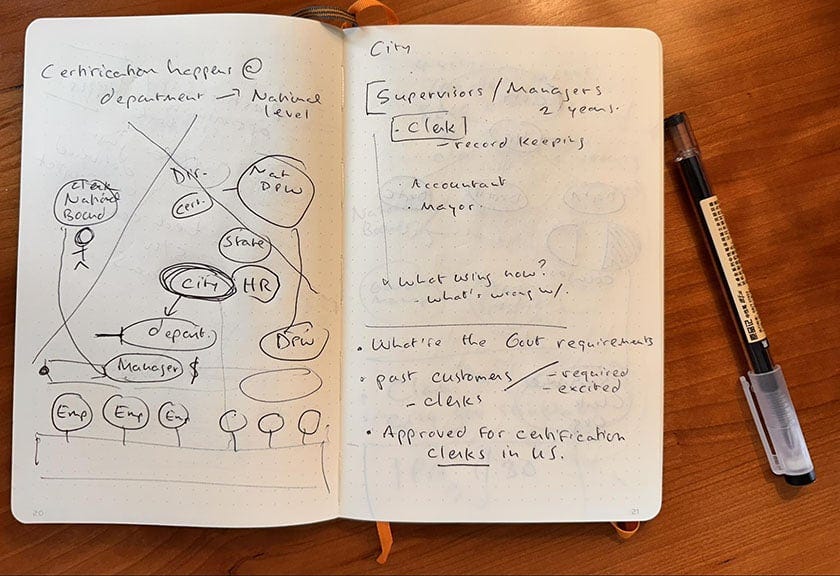 Certification happens @
department → National
level
Clerk
National
Board
Div.
Cert.
Nat
DPW
State
City
HR
depart.
DPW
Manager $
Emp
Emp
Emp
20
City
Supervisors / Managers
2 years.
• Clerk
- record keeping
• Accountant
• Mayor.
What using now?
- what's wrong w/.
• What're the Govt requirements
• past customers
- clerks
- required
- excited
• Approved for certification
clerks in US.
21